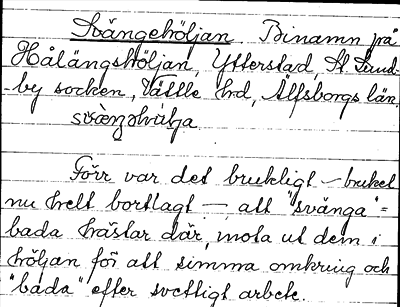 Svängehöljan Binamn på
Hålängshöljan, Ytterstad, St. Lund-
-by socken, Vättle hd, Älfsborgs län.
Förr var det brukligt — bruket
nu helt bortlagt —, att "svänga" =
bada hästar där, mota ut dem i
höljan för att simma omkring och
"bada" efter svettigt arbete.